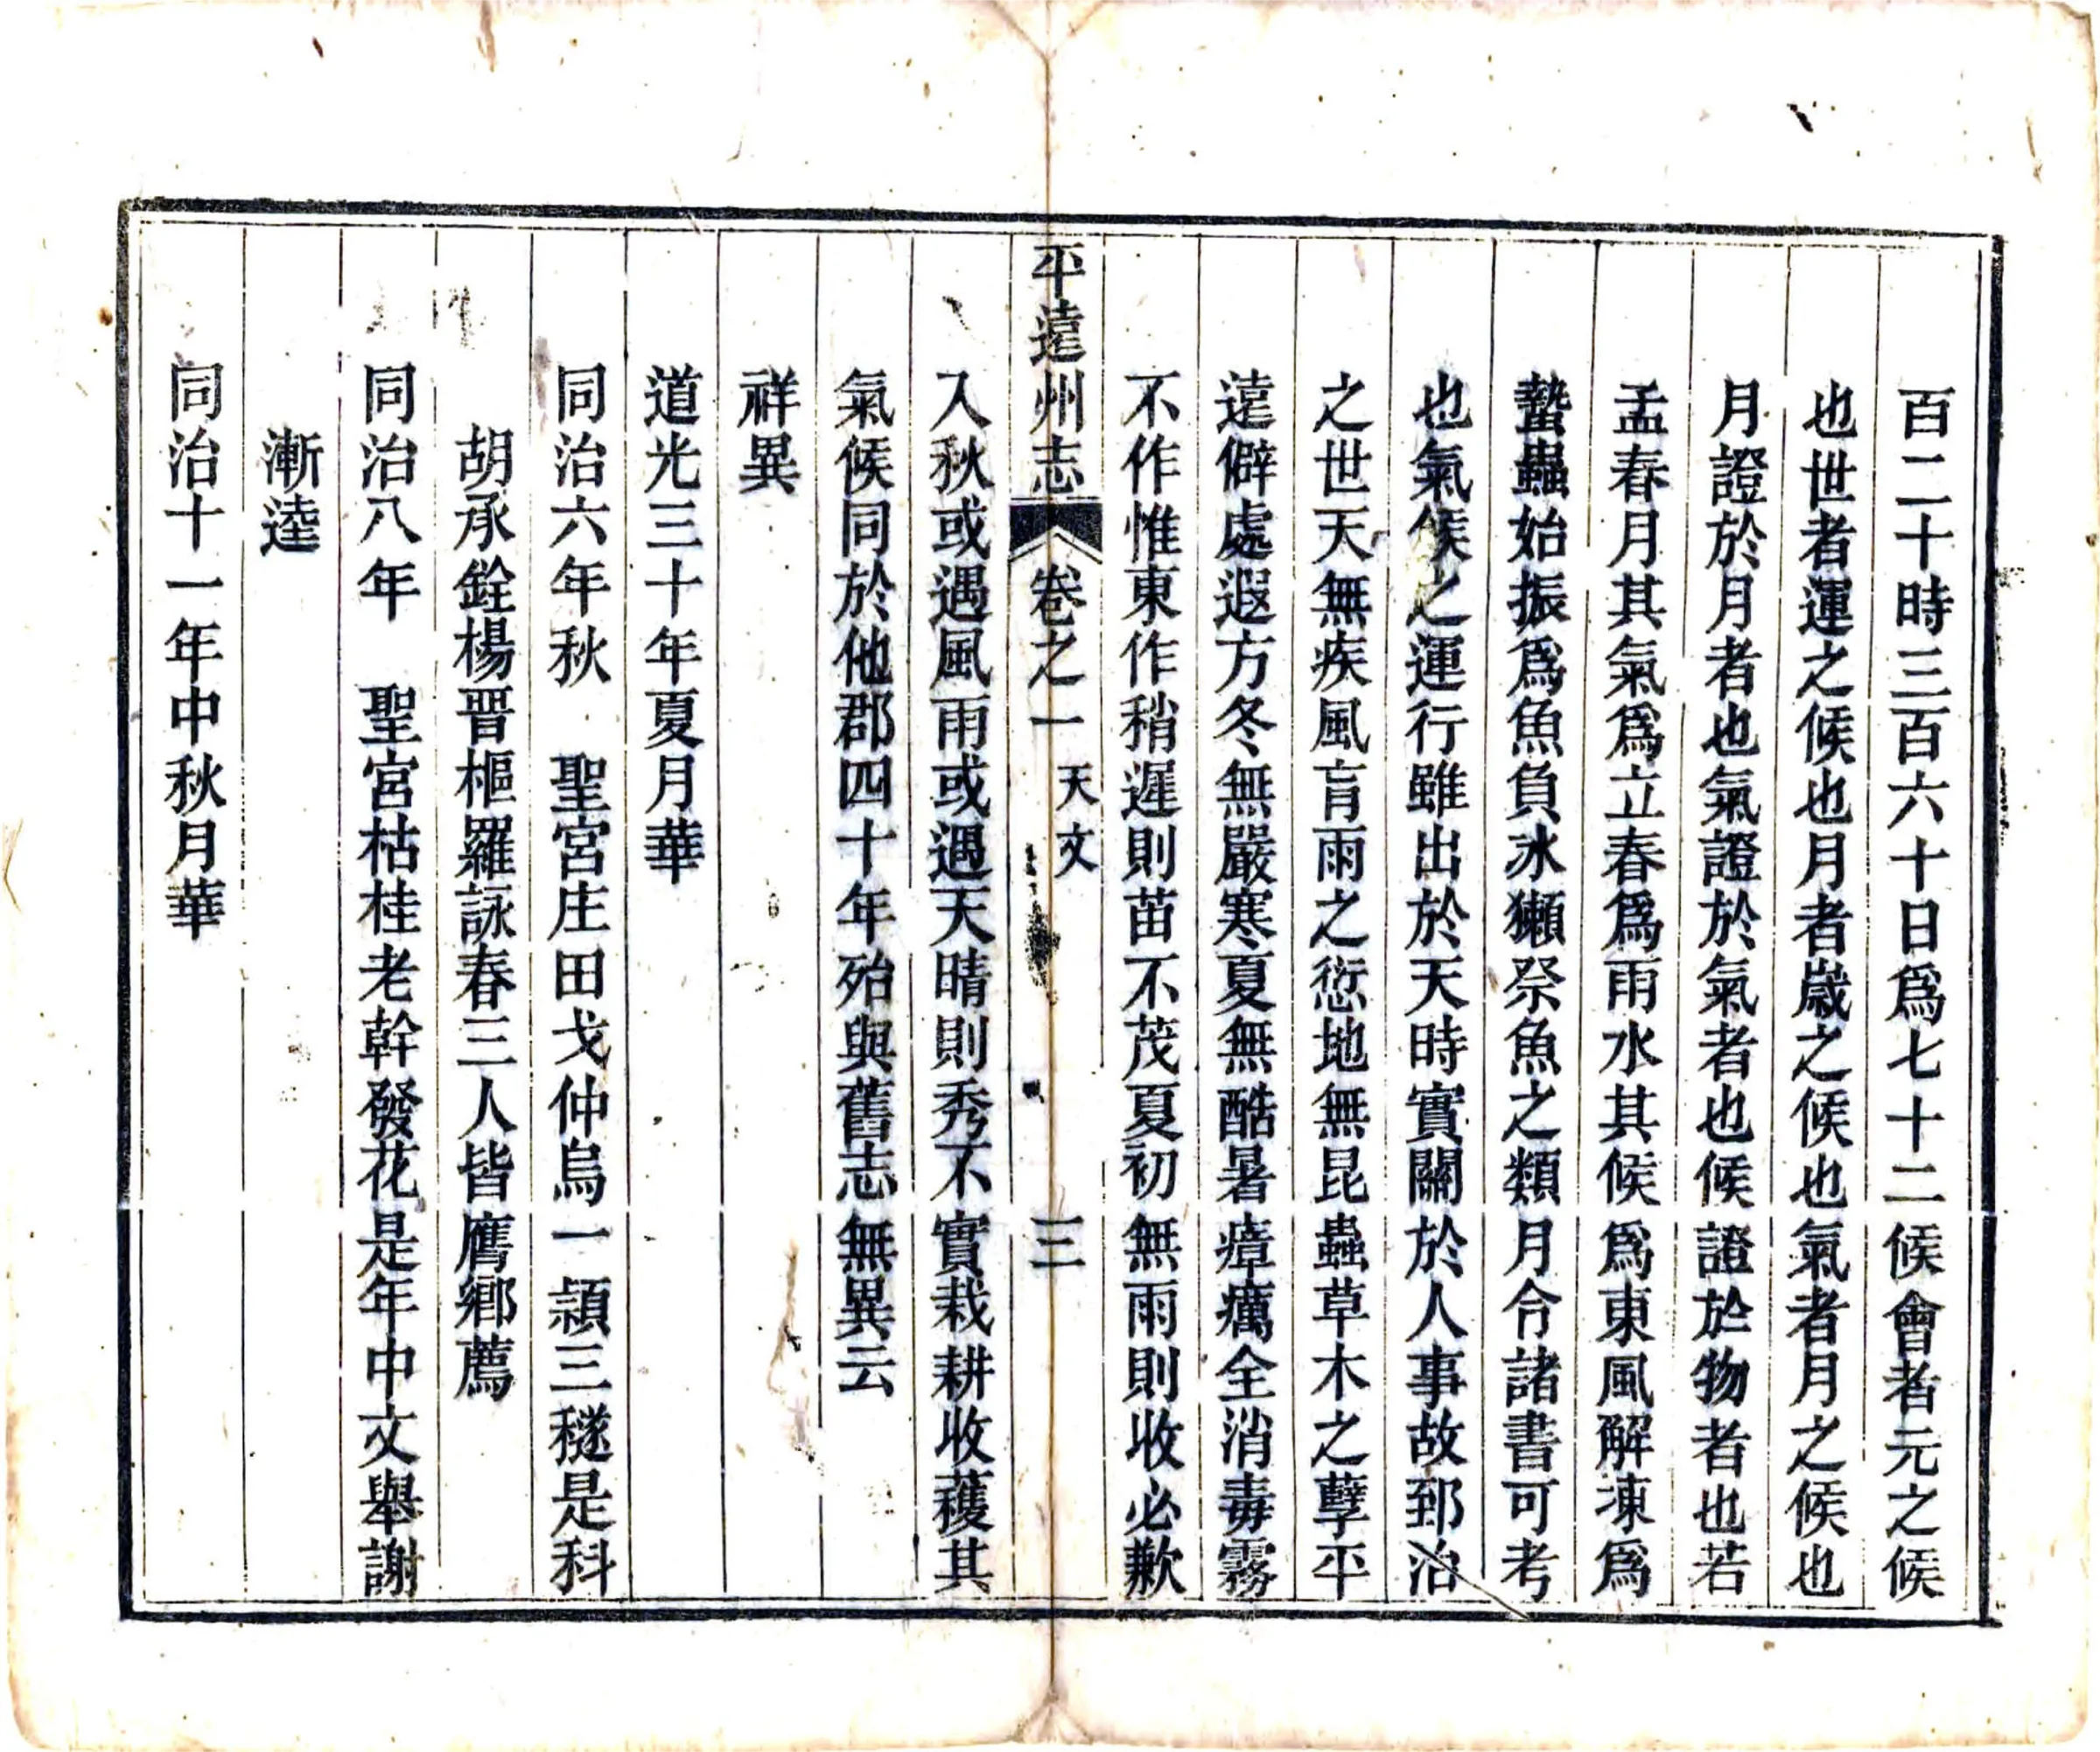 百二十時三百六十日爲七十二候會者元之候
也世者運之候也月者歲之候也氣者月之候也
月證於月者也氣證於氣者也候證於物者也若
孟春月其氣爲立春爲雨水其候爲東風解凍爲
蟄蟲始振爲魚負冰獺祭魚之類月令諸書可考
也氣候之運行雖出於天時實關於人事故郅治
之世天無疾風盲雨之愆地無昆蟲草木之孽平
遠僻處遐方冬無嚴寒夏無酷暑瘴癘全消毒霧
不作惟東作稍遲則苗不茂夏初無雨則收必歉
平遠州志 卷之一 天文 三
入秋或遇風雨或遇天晴則秀不實栽耕收蓰其
氣候同於他郡四十年殆與舊志無異云
祥異
道光三十年夏月華
同治六年秋 聖宮庄田戈仲烏一頴三穟是科
胡承銓楊晋樞羅詠春三人皆膺鄉薦
同治八年 聖宮枯桂老幹發花是年中文舉謝
漸逵
同治十一年中秋月華